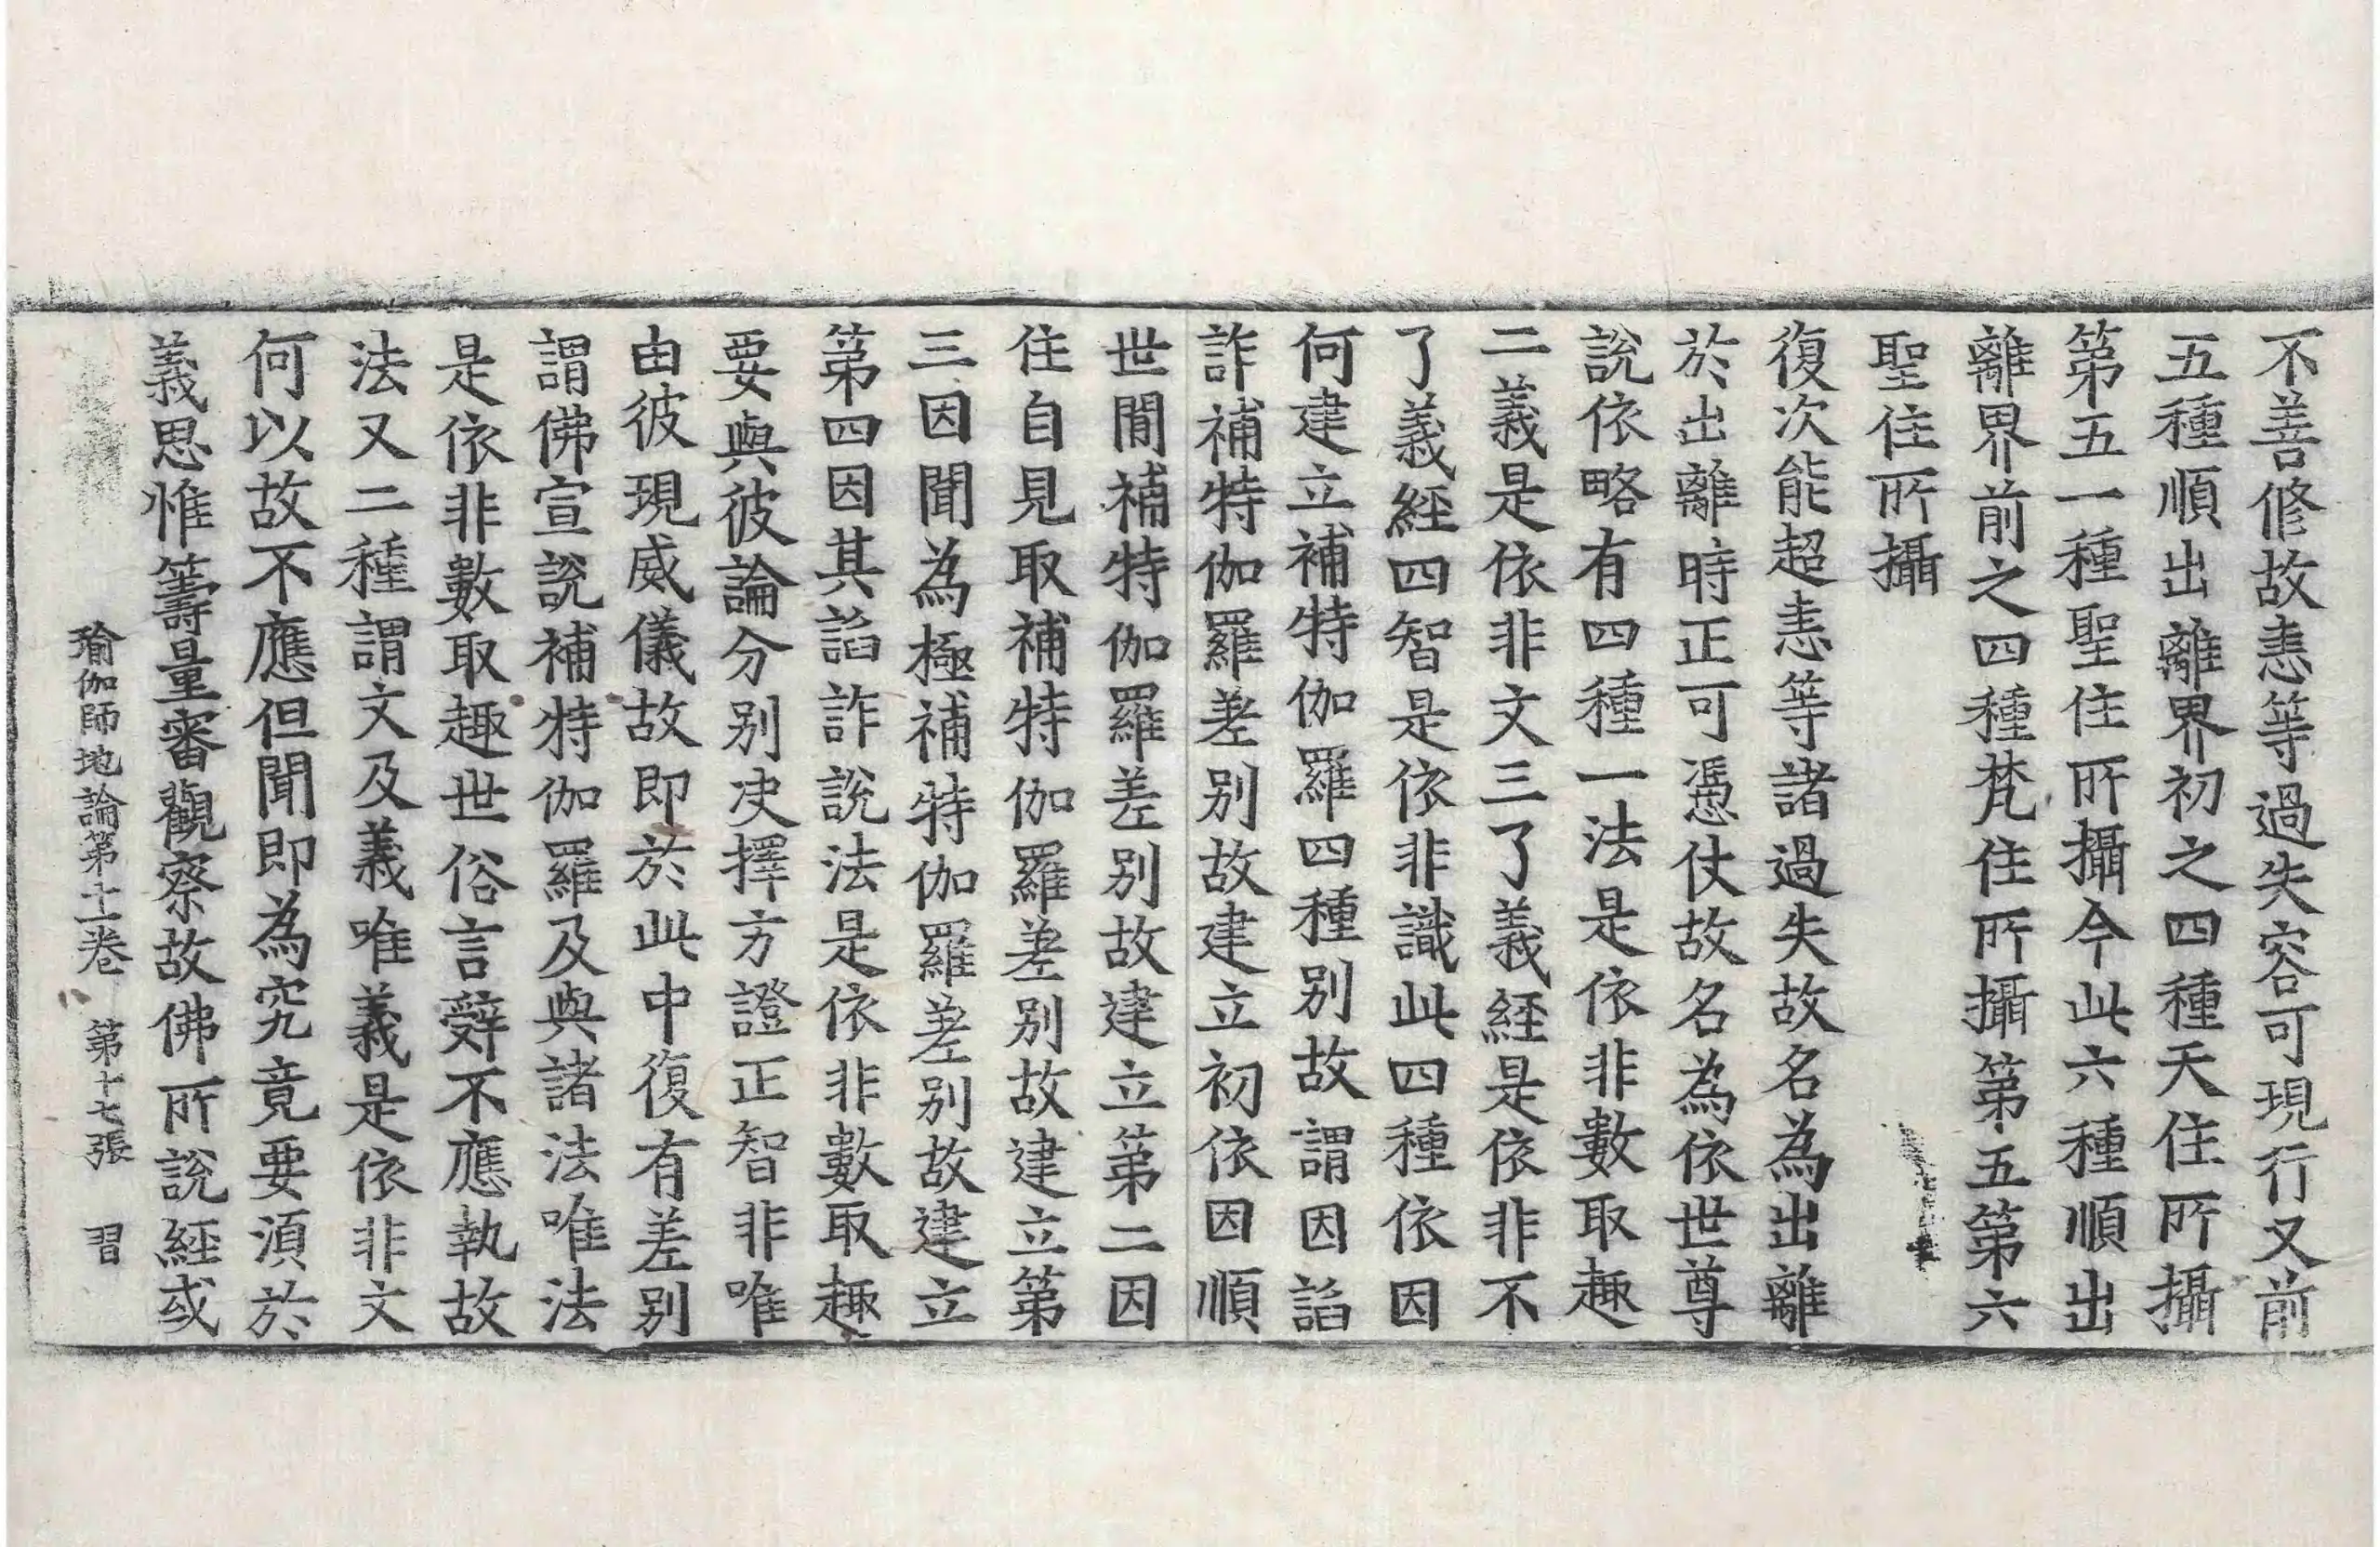 不善修故恚等過失容可現行又前
五種順出離界初之四種天住所攝
第五一種聖住所攝今此六種順出
離界前之四種梵住所攝第五第六
聖住所攝
復次能超恚等諸過失故名為出離
於出離時正可憑仗故名為依世尊
說依略有四種一法是依非數取趣
二義是依非文三了義經是依非不
了義經四智是依非識此四種依因
何建立補特伽羅四種別故謂因諂
詐補特伽羅差別故建立初依因順
世間補特伽羅差別故建立第二因
住自見取補特伽羅差別故建立第
三因聞為極補特伽羅差別故建立
第四因其諂詐說法是依非數取趣
要與彼論分別决擇方證正智非唯
由彼現威儀故即於此中復有差別
謂佛宣說補特伽羅及與諸法唯法
是依非數取趣世俗言辭不應執故
法又二種謂文及義唯義是依非文
何以故不應但聞即為究竟要須於
義思惟籌量審觀察故佛所說經或
瑜伽師地論第十一卷　第十七張　習